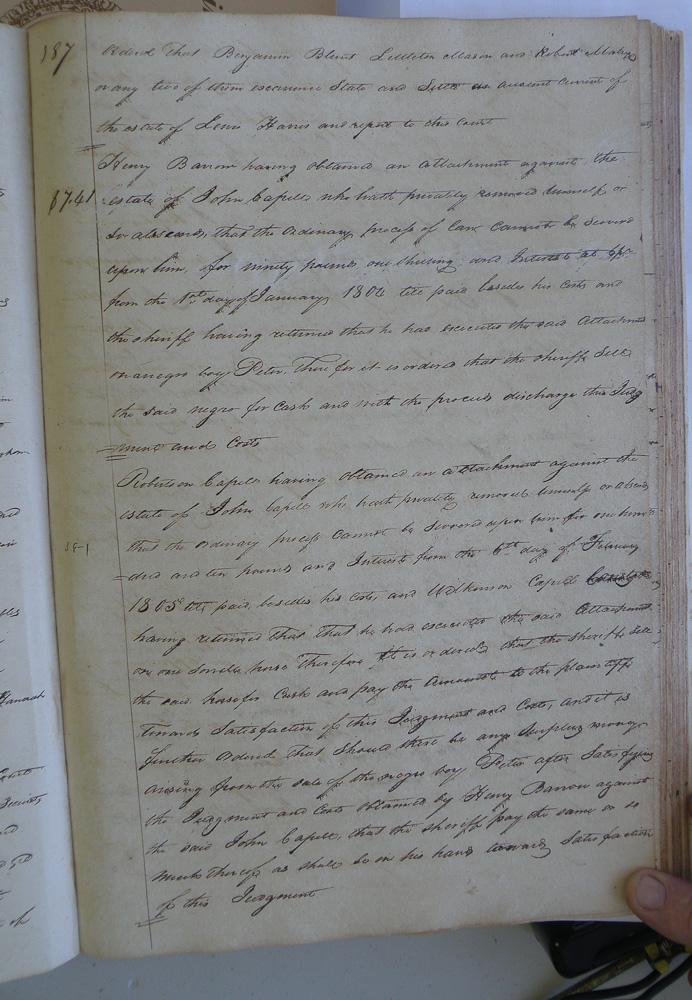 187 Ordered That Benjamin Blunt Littleton Mason and Robert
or any two of them examine State and Settle an account current of
the estate of Lewis Harris and report to this Court
Henry Barrow having obtained an attachment against the
87.41 estate of John Capell who hath privately removed himself or
so absconds, that the ordinary process of law cannot be served
upon him, for ninety pounds one shilling and Interest at
from the 1st day of January 1804 till paid besides his costs and
the sheriff having returned that he has executed the said Attachment
on a negro boy Peter, There for it is ordered that the sheriff Sell
the said negro for Cash and with the proceeds discharge this Judg
ment and Costs
Robertson Capell having obtained an attachment against the
estate of John Capell who hath privately removed himself or absconds
that the ordinary process cannot be served upon him for one hun
dred and ten pounds and Interest from the 6th day of February
1805 till paid, besides his costs, and Wilkinson Capell
having returned that that he had executed the said Attachment
on one Sorrell horse Therefore It is ordered that the sheriff sell
the said horse for Cash and pay the Amount to the plaintiff
towards Satisfaction of this Judgment and Costs, and it is
further ordered that should there be any Surplus money
arising from the sale of the negro boy Peter after Satisfying
the Judgment and Costs obtained by Henry Barrow against
the said John Capell, that the sheriff pay the same or so
much thereof as shall be in his hands towards Satisfaction
of this Judgment